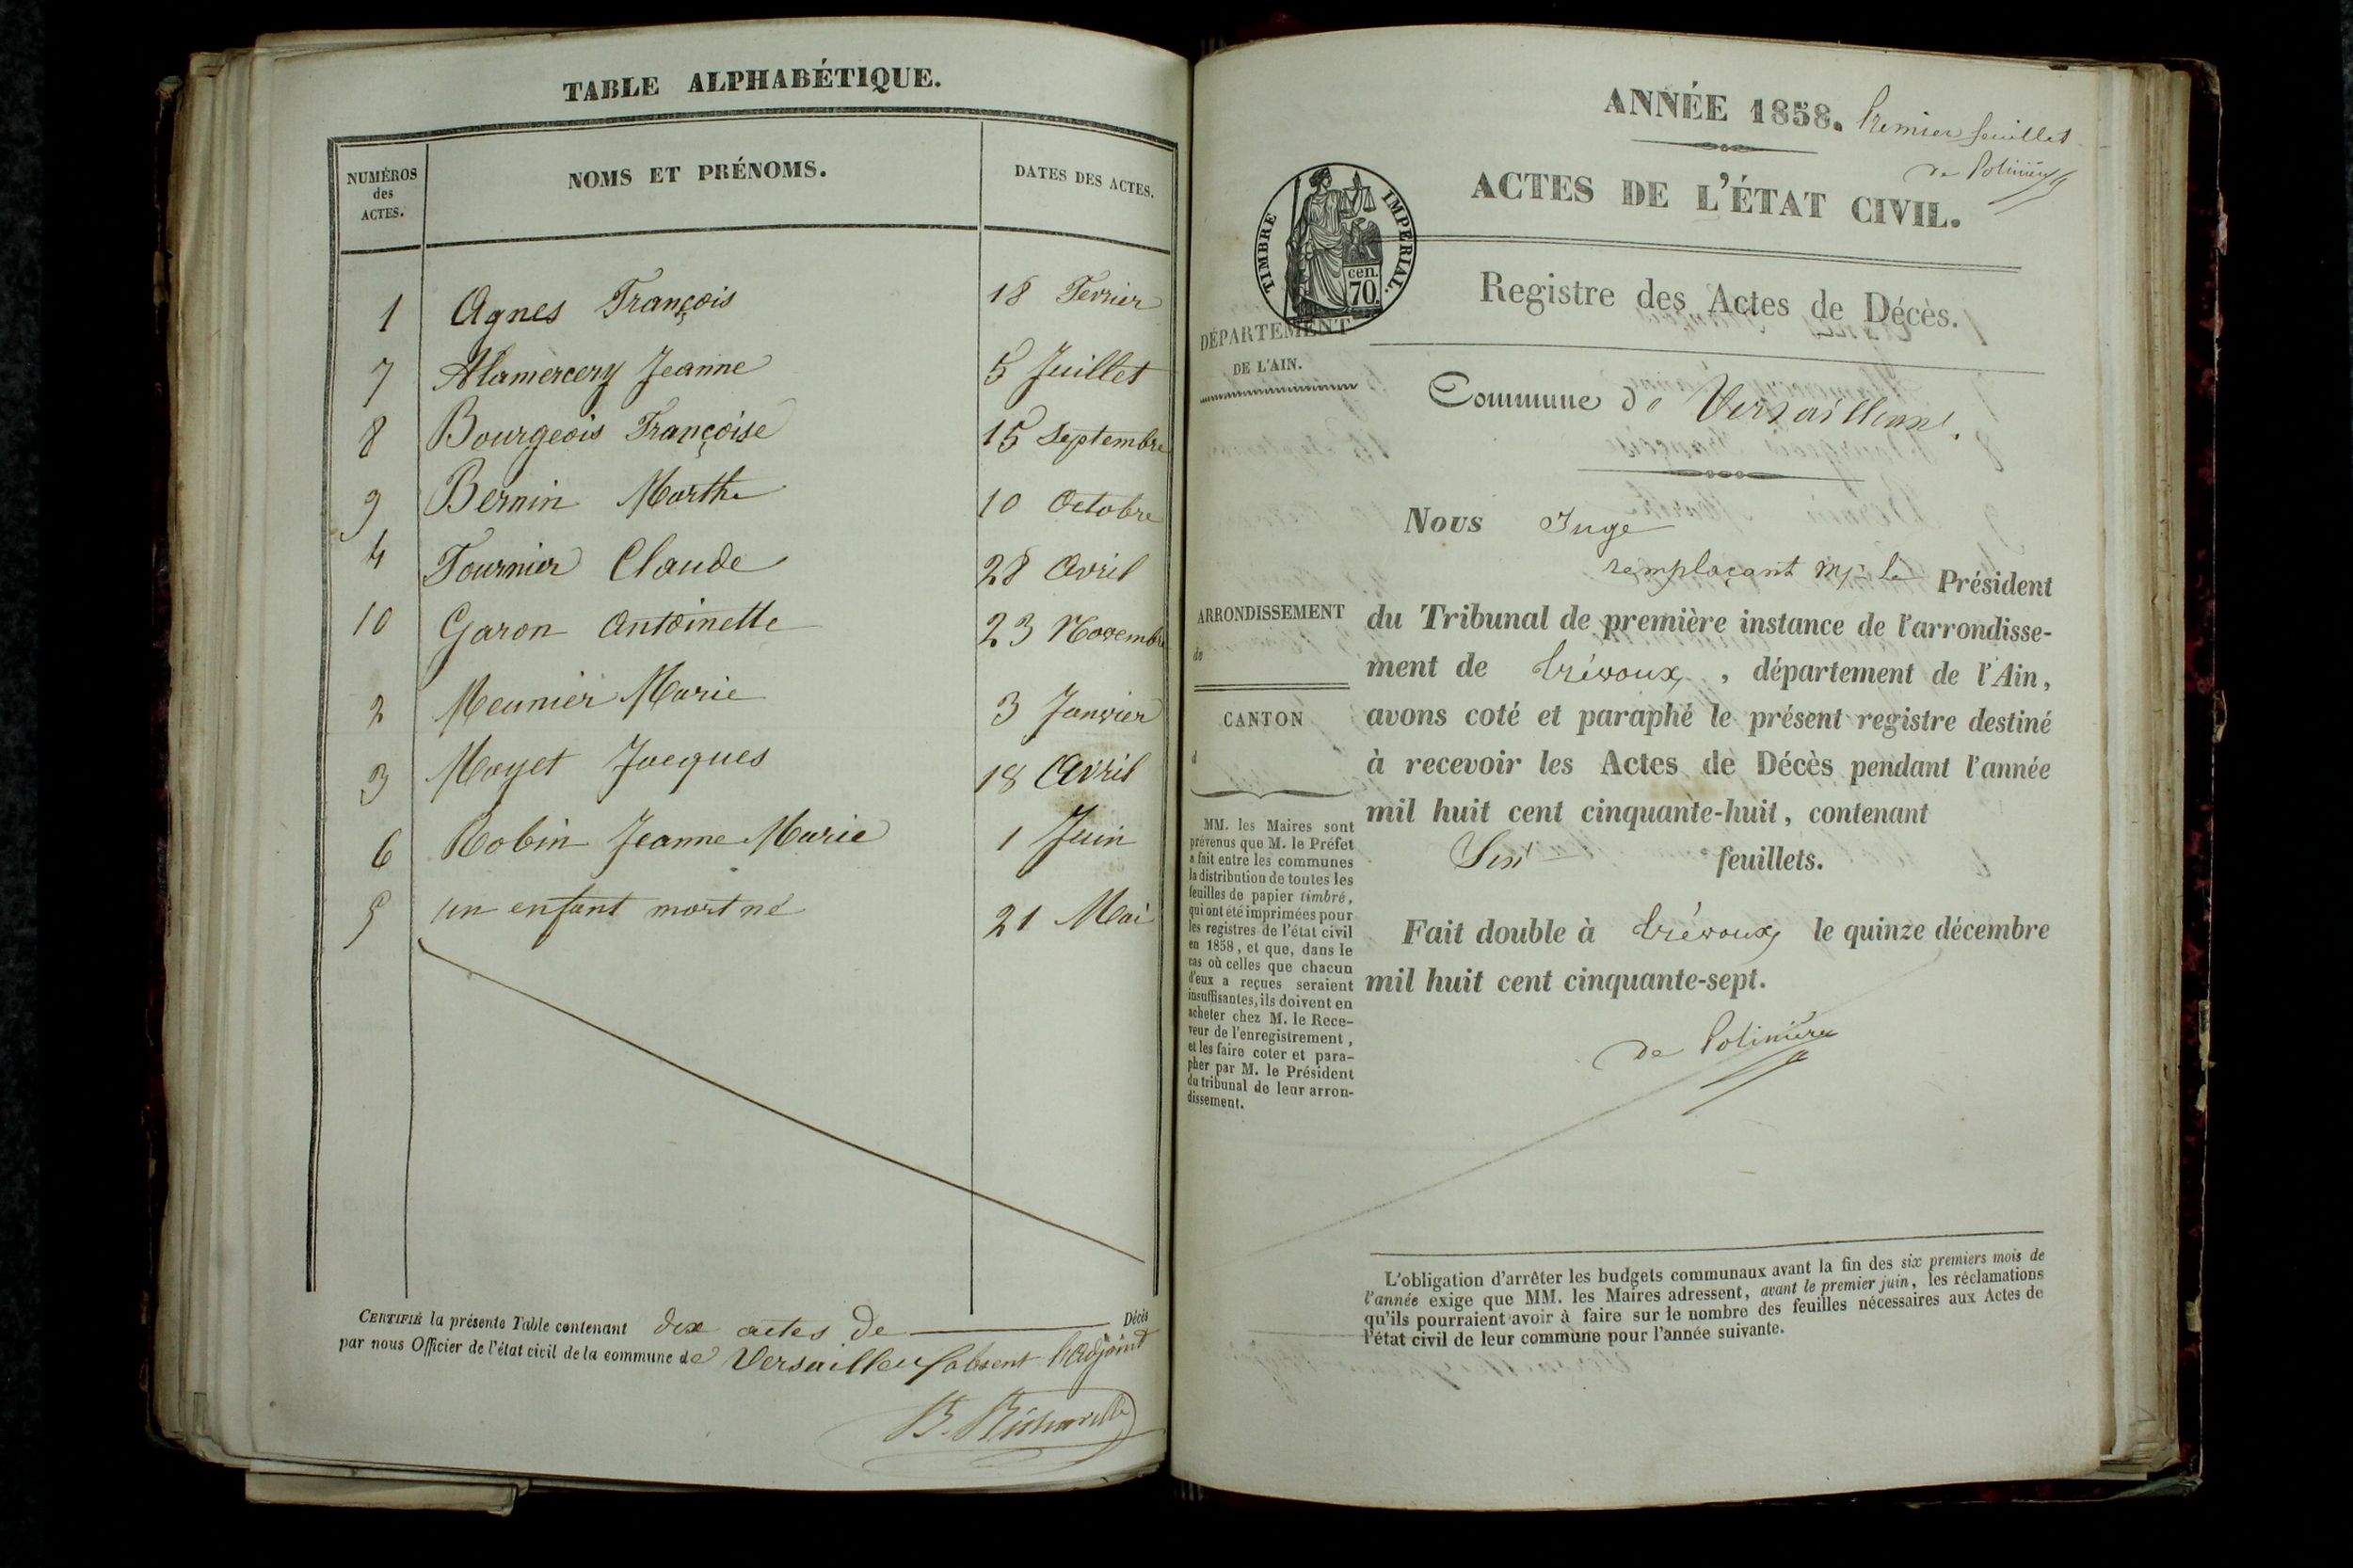 TABLE ALPHABÉTIQUE.
NUMÉROS des ACTES. NOMS ET PRÉNOMS. DATES DES ACTES.
1 Agnes François 18 Fevrier
7 Alamercery Jeanne 5 Juillet
8 Bourgeois Françoise 15 Septembre
9 Bernin Marthe 10 Octobre
4 Fournier Claude 28 Avril
10 Garon Antoinette 23 Novembre
2 Meunier Marie 3 Janvier
3 Moyet Jacques 18 Avril
6 Robin Jeanne Marie 1 Juin
5 un enfant mort né 21 Mai
CERTIFIÉ la présente Table contenant dix actes de Décès
par nous Officier de l'état civil de la commune de Versailleux absent l'adjoint
ANNÉE 1858. Premier feuillet
de Polinière
ACTES DE L'ÉTAT CIVIL.
TIMBRE IMPÉRIAL.
cen.
70.
Registre des Actes de Décès.
DÉPARTEMENT
DE L'AIN.
Commune de Versailleux.
Nous Juge
remplaçant Mr le Président
du Tribunal de première instance de l'arrondisse-
ment de Trévoux, département de l'Ain,
avons coté et paraphé le présent registre destiné
à recevoir les Actes de Décès pendant l'année
mil huit cent cinquante-huit, contenant
Six feuillets.
Fait double à Trévoux le quinze décembre
mil huit cent cinquante-sept.
de Polinière
ARRONDISSEMENT
de
CANTON
d
MM. les Maires sont
prévenus que M. le Préfet
a fait entre les communes
la distribution de toutes les
feuilles de papier timbré,
qui ont été imprimées pour
les registres de l'état civil
en 1858, et que, dans le
cas où celles que chacun
d'eux a reçues seraient
insuffisantes, ils doivent en
acheter chez M. le Rece-
veur de l'enregistrement,
et les faire coter et para-
pher par M. le Président
du tribunal de leur arron-
dissement.
L'obligation d'arrêter les budgets communaux avant la fin des six premiers mois de
l'année exige que MM. les Maires adressent, avant le premier juin, les réclamations
qu'ils pourraient avoir à faire sur le nombre des feuilles nécessaires aux Actes de
l'état civil de leur commune pour l'année suivante.